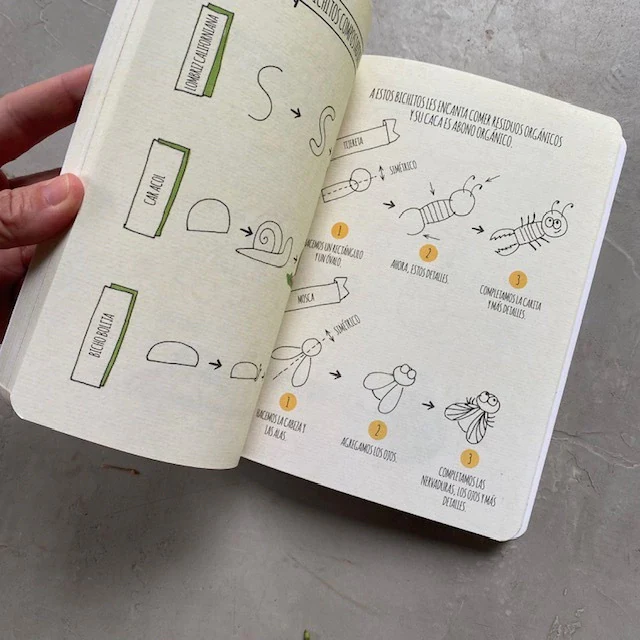 BICHITOS COMPOS
LOMBRIZ CALIFORNIANA
CARACOL
BICHO BOLITA
A ESTOS BICHITOS LES ENCANTA COMER RESIDUOS ORGÁNICOS
Y SU CACA ES ABONO ORGÁNICO.
TIJERETA
SIMÉTRICO
1
HACEMOS UN RECTÁNGULO
Y UN ÓVALO.
2
AHORA, ESTOS DETALLES.
3
COMPLETAMOS LA CARITA
Y MÁS DETALLES.
MOSCA
SIMÉTRICO
1
HACEMOS LA CABEZA Y
LAS ALAS.
2
AGREGAMOS LOS OJOS.
3
COMPLETAMOS LAS
NERVADURAS, LOS OJOS Y MÁS
DETALLES.